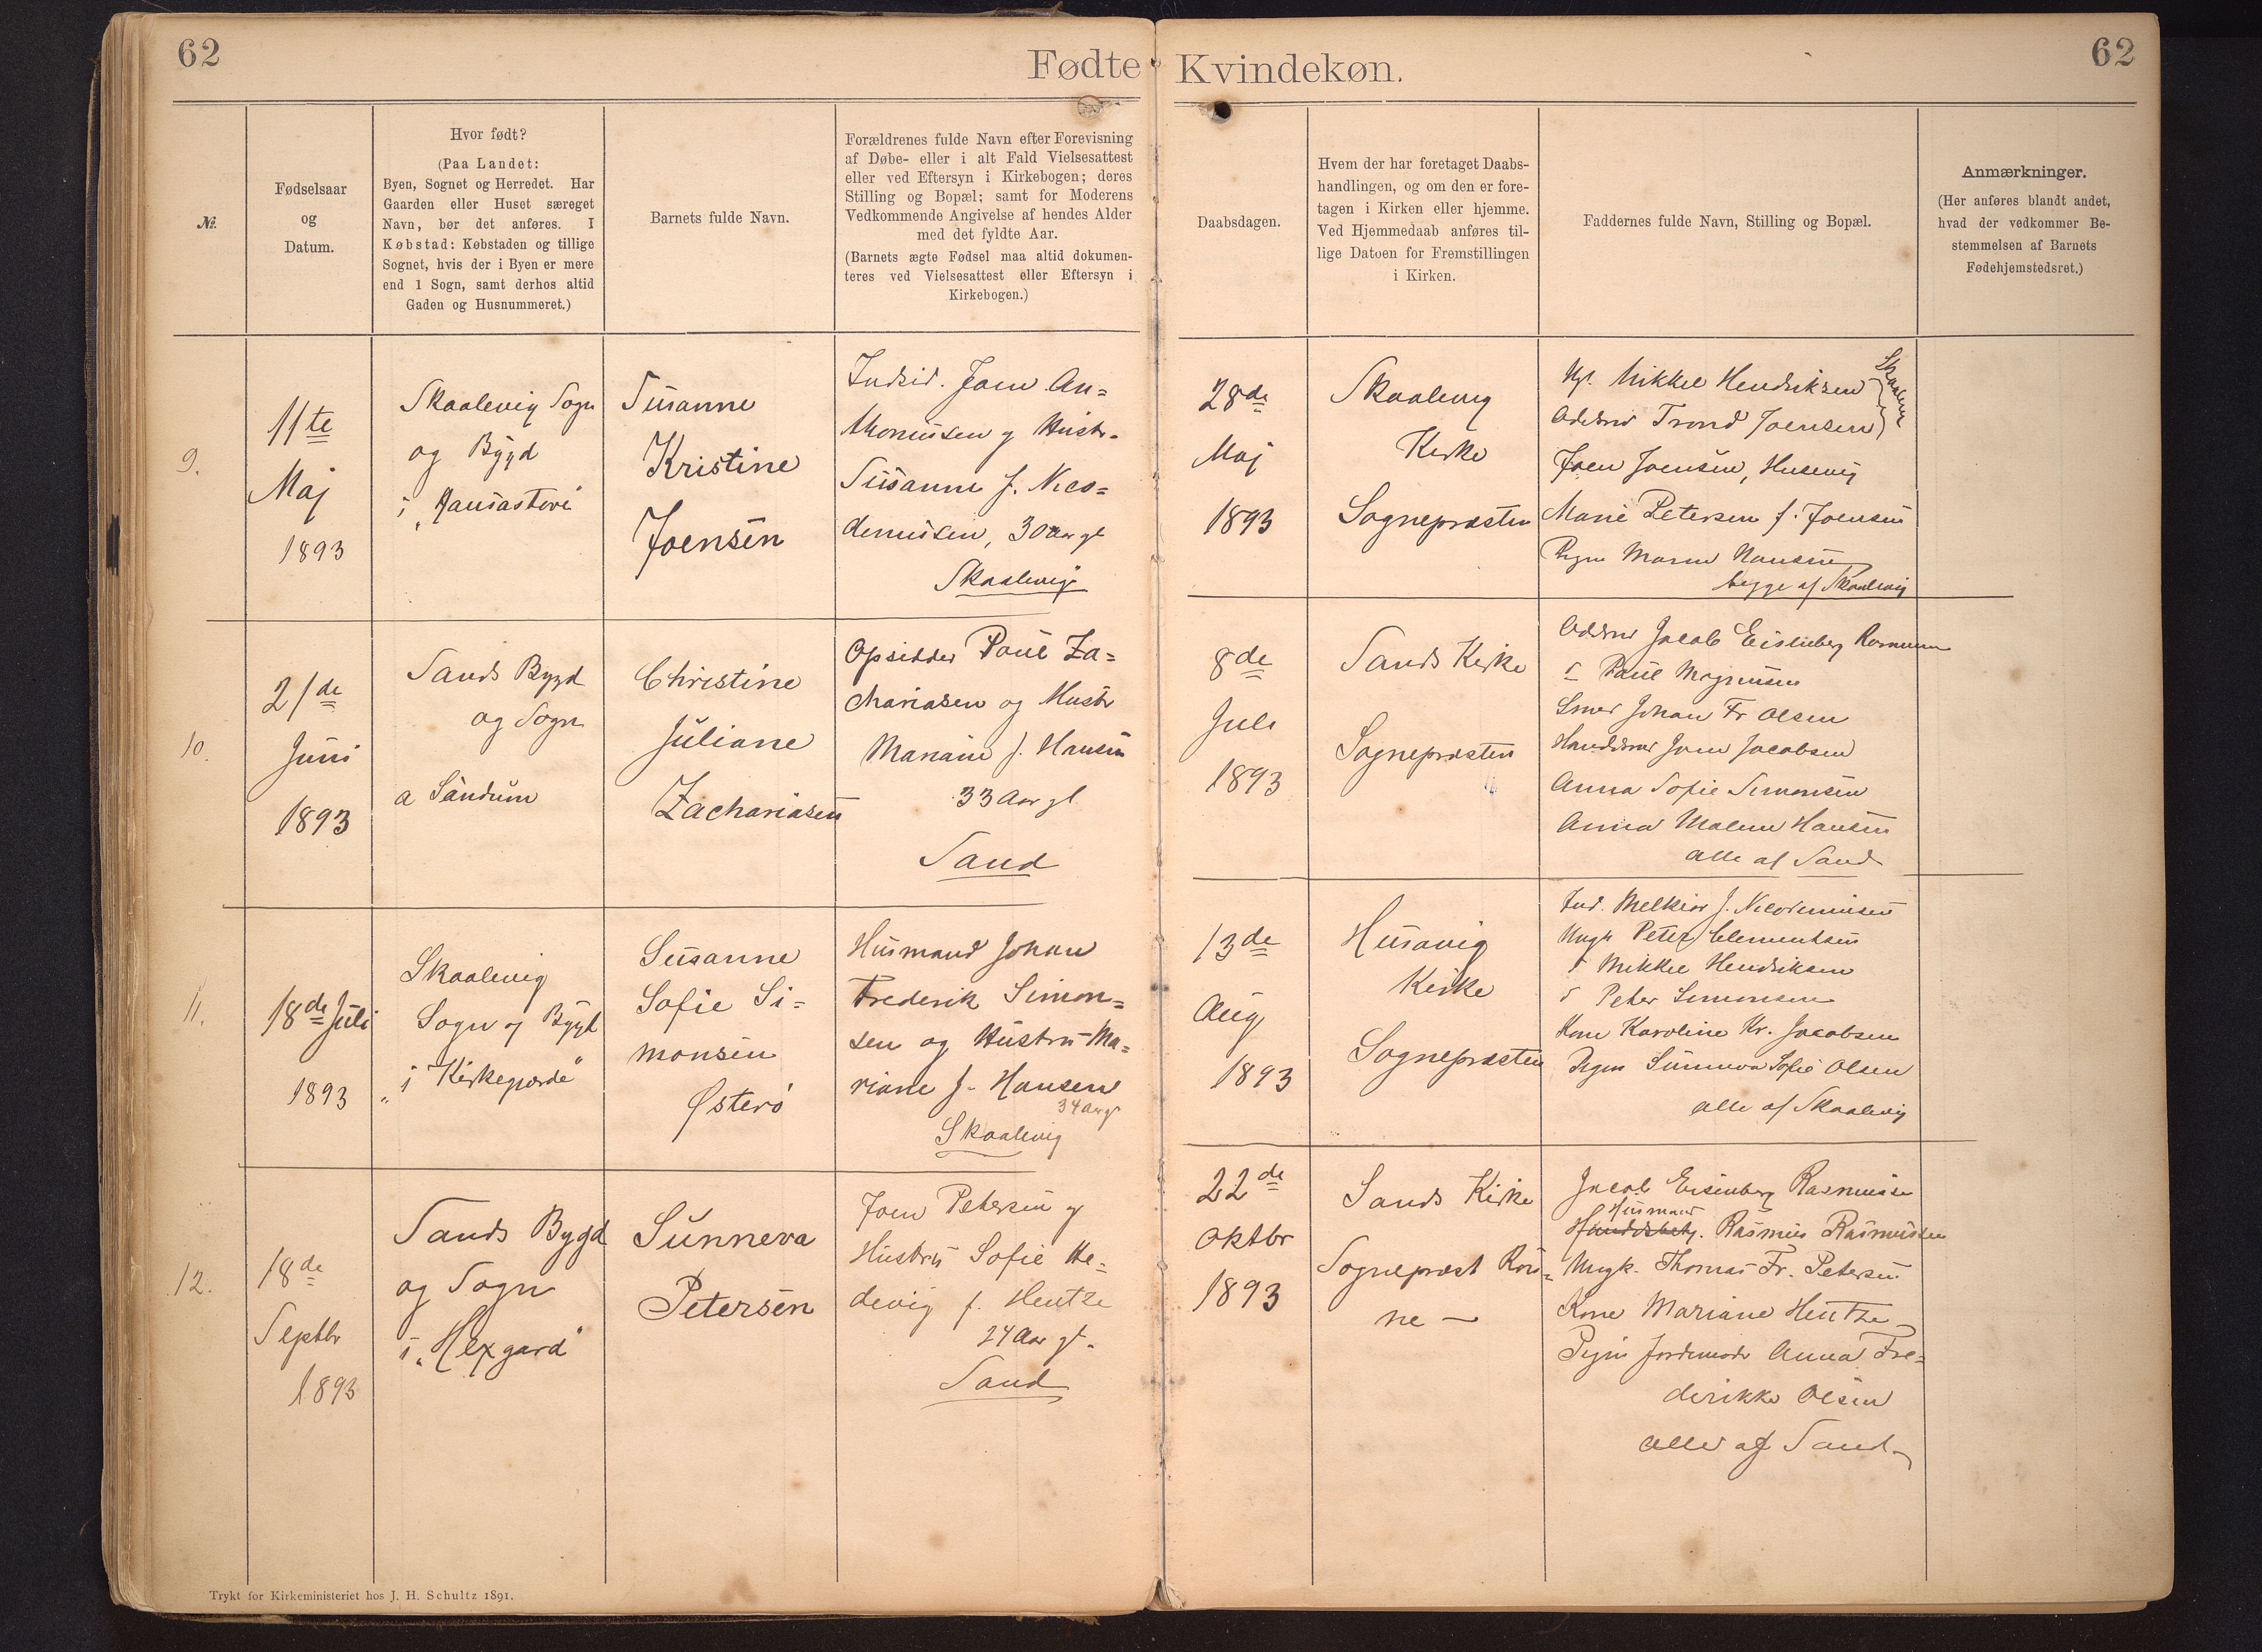 62
Fødte Kvindekøn.
62
№.
Fødselsaar
og
Datum.
Hvor født?
(Paa Landet:
Byen, Sognet og Herredet. Har
Gaarden eller Huset særeget
Navn, bør det anføres. I
Købstad: Købstaden og tillige
Sognet, hvis der i Byen er mere
end 1 Sogn, samt derhos altid
Gaden og Husnummeret.)
Barnets fulde Navn.
Forældrenes fulde Navn efter Forevisning
af Døbe- eller i alt Fald Vielsesattest
eller ved Eftersyn i Kirkebogen; deres
Stilling og Bopæl; samt for Moderens
Vedkommende Angivelse af hendes Alder
med det fyldte Aar.
(Barnets ægte Fødsel maa altid dokumen-
teres ved Vielsesattest eller Eftersyn i
Kirkebogen.)
Daabsdagen.
Hvem der har foretaget Daabs-
handlingen, og om den er fore-
tagen i Kirken eller hjemme.
Ved Hjemmedaab anføres til-
lige Datoen for Fremstillingen
i Kirken.
Faddernes fulde Navn, Stilling og Bopæl.
Anmærkninger.
(Her anføres blandt andet,
hvad der vedkommer Be-
stemmelsen af Barnets
Fødehjemstedsret.)
9.
11te
Maj
1893
Skaalevig Sogn
og Bygd
i "Hansastovi"
Susanne
Kristine
Joensen
Indsid. Joen An=
thoniusen og Hustr.
Susanne f. Nico=
demusen, 30 Aar gl
Skaalevig
28de
Maj
1893
Skaalevig
Kirke
Sognepræsten
Ugk. Mikkel Hendriksen
Trond Joensen
Joen Joensen, Husevig
Marie Petersen f. Joensen
Pigen Maren Hansen
begge af Skaalevig
10.
21de
Juni
1893
Sands Bygd
og Sogn
a Sandum
Christine
Juliane
Zachariasen
Opsidder Poul Za=
chariasen og Hustr
Mariane f. Hansen
33 Aar gl
Sand
8de
Juli
1893
Sands Kirke
Sognepræsten
Jacob Eisenberg Rasmussen
Poul Magnusen
Johan Fr Olsen
Joen Jacobsen
Anna Sofie Simonsen
Anna Malene Hansen
alle af Sand
11.
18de Juli
1893
Skaalevig
Sogn og Bygd
i "Kirkegærde"
Susanne
Sofie Si=
monsen
Østerø
Husmand Johan
Frederik Simon=
sen og Hustru Ma=
riane f. Hansen
34 Aar gl
Skaalevig
13de
Aug
1893
Husavig
Kirke
Sognepræsten
Ind. Melkior J. Nicodemusen
Ungk Peter Clementsen
Mikkel Hendriksen
Peter Simonsen
Kone Karoline Kr. Jacobsen
Pigen Sunneva Sofie Olsen
alle af Skaalevig
12.
18de
Septbr
1893
Sands Bygd
og Sogn
i "Hexgard"
Sunneva
Petersen
Joen Petersen og
Hustru Sofie He=
devig f. Hentze
24 Aar gl.
Sand
22de
Oktbr
1893
Sands Kirke
Sognepræst Røn=
ne
Jacob Eisenberg Rasmussen
Husmand
Rasmus Rasmussen
Ungk. Thomas Fr. Petersen
Kone Mariane Hentze
Pigen Jordemoder Anna Fre=
derikke Olsen
alle af Sand
Trykt for Kirkeministeriet hos J. H. Schultz 1891.